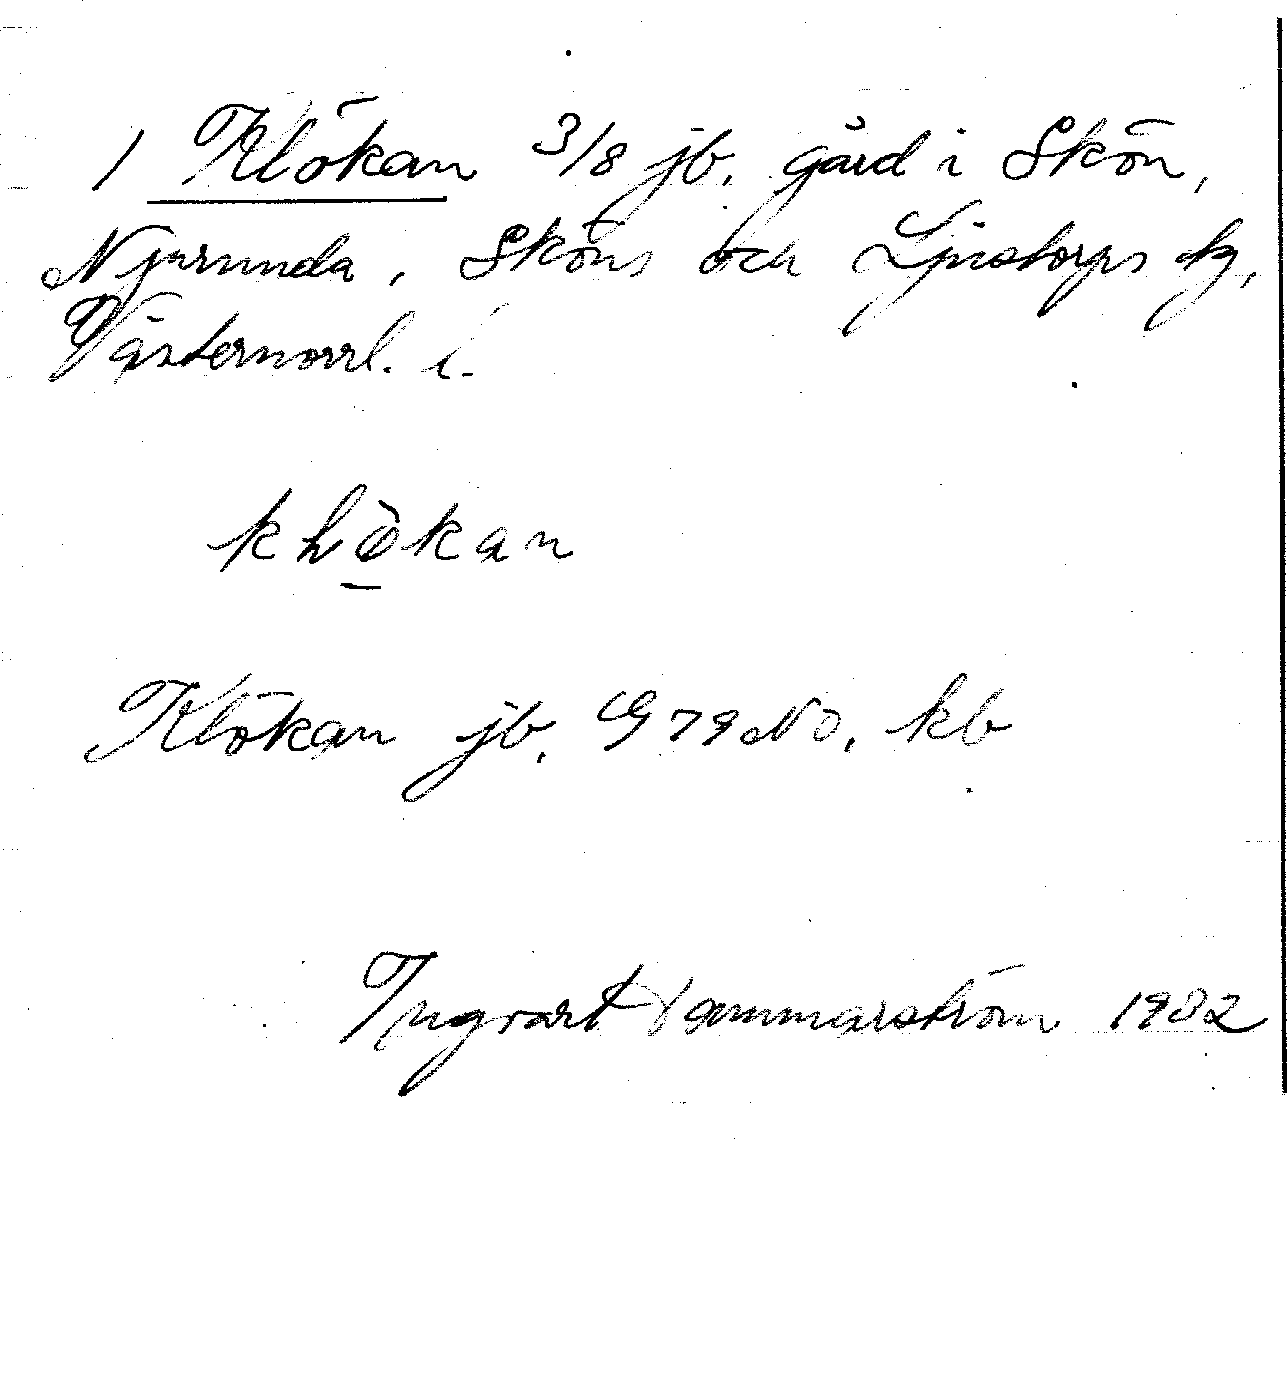 1 Klökan 3/8 jb. gård i Skön,
Njurunda, Sköns och Ljustorps tg,
Västernorrl. l.
khökan
Klökan jb, G 79 NO, kb
Ingvart Hammarström 1982